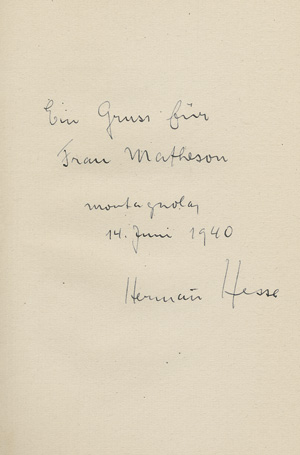 Ein Gruss für
Frau Matheson
Montagnola,
14. Juni 1940
Hermañ Hesse